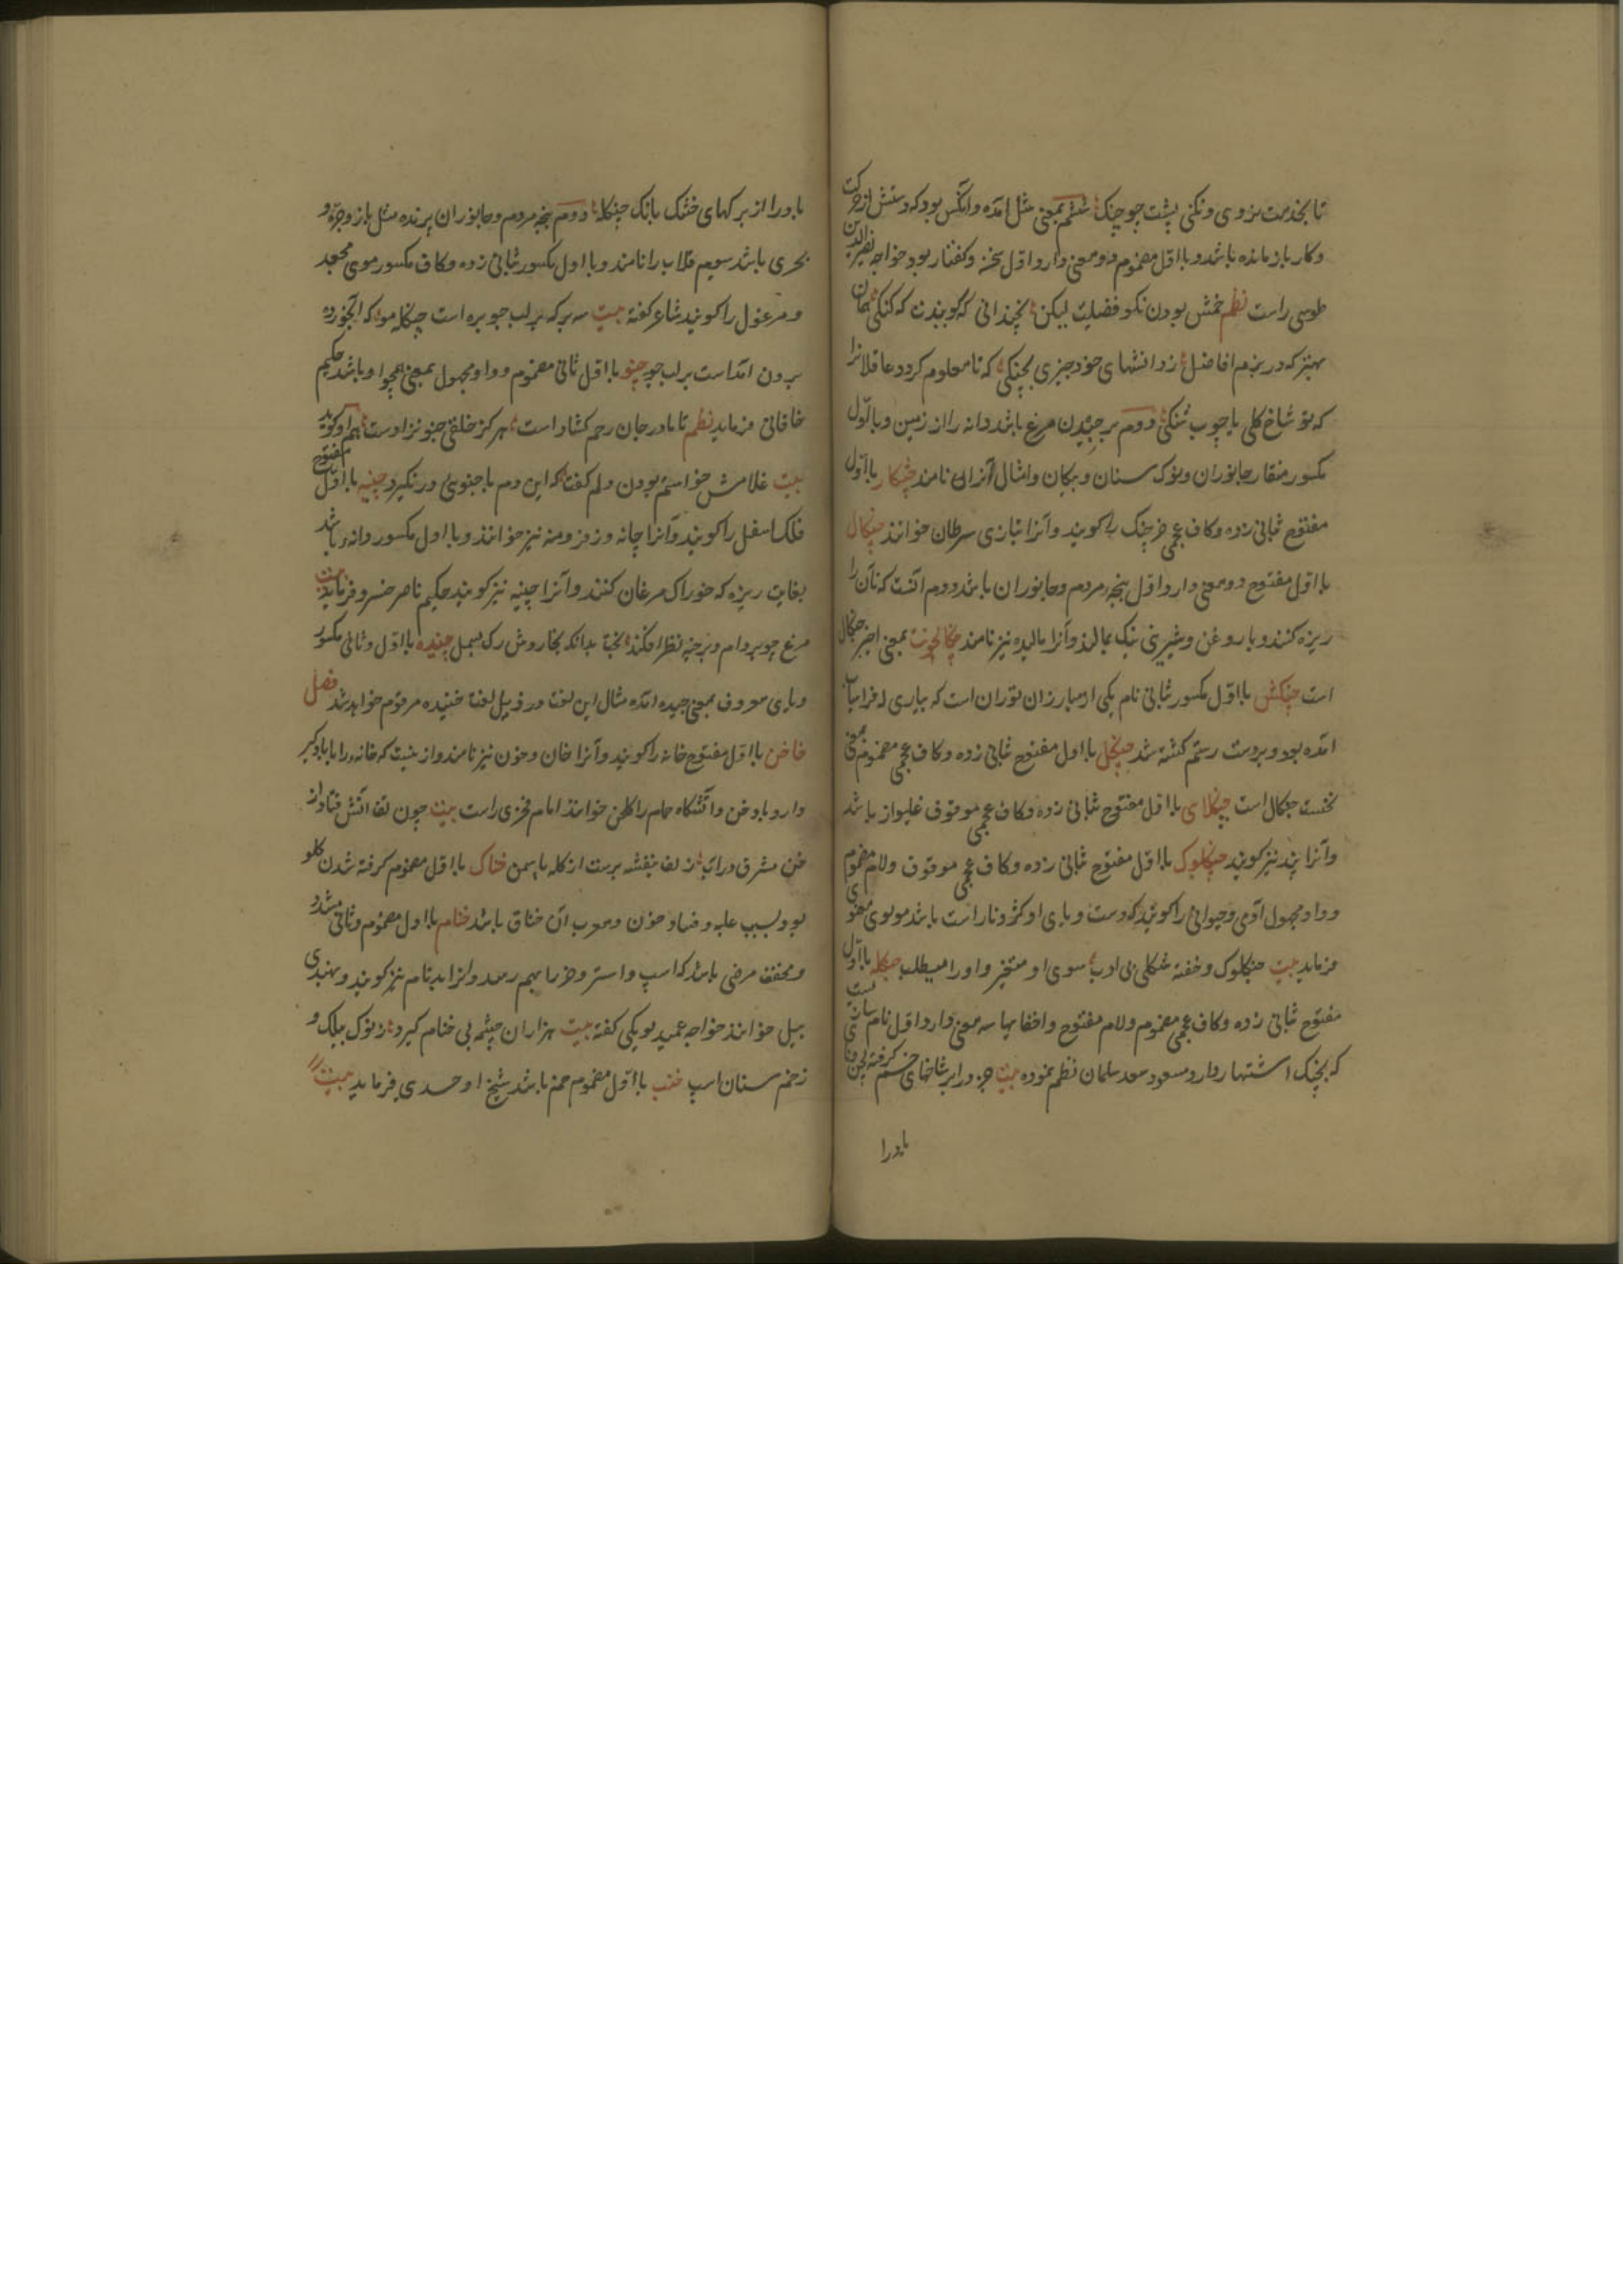 تا بخدمت نروی ونکنی پشت چو چنک ششم بمعنی شل آمده وآنکس بود که دستش از حرکت
وکار باز مانده باشد و با اول مضموم دو معنی دارد اول سخن وکفتار بود خواجه نصیر الدین
طوسی راست نظم خمش بودن نکو فضلیت لیکن نچندانی که کویندت که کنکی همان
بهتر که در بزم افاضل ز دانشهای خود چیزی بچنکی که تا معلوم کردد عاقلانرا
که تو شاخ کلی یا چوب شنکی دوم بر چیدن مرغ باشد دانه را از زمین و با اول
مکسور منقار جانوران ونوک سنان و پیکان وامثال آنرا نامند چنکار با اول
مفتوح بثانی زده وکاف عجمی خرچنک را کویند وآنرا بتازی سرطان خوانند چنکال
با اول مفتوح دو معنی دارد اول پنجه مردم وجانوران باشد دوم آنست که نان را
ریزه کنند و با روغن وشیرینی نیک بمالند وآنرا مالیده نیز نامند چنکالخوست بمعنی اخیر چنکال
است چنکش با اول مکسور بثانی نام یکی از مبارزان توران است که بیاری افراسیاب
آمده بود و بردست رستم کشته شد چنکل با اول مفتوح بثانی زده وکاف عجمی مضموم بمعنی
نخست چنکال است چنکلای با اول مفتوح بثانی زده وکاف عجمی موقوف غلیواز باشد
وآنرا پند نیز کویند چنکلوک با اول مفتوح بثانی زده وکاف عجمی موقوف ولام مضموم
وواو مجهول آدمی وحیوانی را کویند که دست وپای او کژ وناراست باشد مولوی معنوی
فرماید بیت چنکلوک وخفته شکل وبی ادب سوی او میخیز واو را میطلب چنکله با اول
مفتوح بثانی زده وکاف عجمی مضموم ولام مفتوح واخفا ها سه معنی دارد اول نام سازیست
که بچنک اشتهار دارد مسعود سعد سلمان نظم نموده بیت هزار شاخهای خشک کرفته
بادرا
بادرا از برکهای خشک بانک چنکله دوم پنجه مردم وجانوران پرنده مثل باز وجره و
بحری باشد سیوم قلاب را نامند وبا اول مکسور بثانی زده وکاف مکسور موی مجعد
ومرغول را کویند شاعر کفته بیت سبزه که بر لب جو بره است چنکله موی که آبخورده
بیرون آمدست بر لب جو چنو با اول ثانی مضموم وواو مجهول بمعنی همچو او باشد حکیم
خاقانی فرماید نظم تا مادر جان رحم کشاد است هرکز خلفی چنو نزاد است هم او کوید
بیت غلامش خواستم بودن دلم کفت که این دم با چنوئی در نکیرد چنه با اول مفتوح
فلک اسفل را کویند وآنرا چانه وزنخ ومنه نیز خوانند وبا اول مکسور دانه باشد
بغایت ریزه که خوراک مرغان کنند وآنرا چینه نیز کویند حکیم ناصر خسرو فرماید بیت
مرغ چو بر دام وبر چنه نظر افکند بخت بدانکه بخاردش رک بسمل چنیده با اول وثانی مکسور
ویای معروف بمعنی چیده آمده مثال این لغت در ذیل لغت خنیده مرقوم خواهد شد فصل
خا خن با اول مفتوح خانه را کویند وآنرا خان وخون نیز نامند واز ینست که خانه را با بادکیر
دارد بادخن وآتشکاه حمام را کلخن خوانند امام فخری راست بیت چون تف آتش فتاد از
خن مشرق در آب زلف بنفشه برست از کله یاسمن خناک با اول مضموم کرفته شدن کلو
بود بسبب غلبه وفساد خون ومعرب آن خناق باشد خنام با اول مضموم وثانی مشدد
ومخفف مرضی باشد که اسپ واستر وخر را بهم رسد وآنرا بدنام نیز کویند وبهندی
بیل خوانند خواجه عمید لویکی کفته بیت هزاران چشمه بی خنام کیرد ز نوک بیلک و
زخم سنان اسپ خنب با اول مضموم خم باشد شیخ اوحدی فرماید بیت